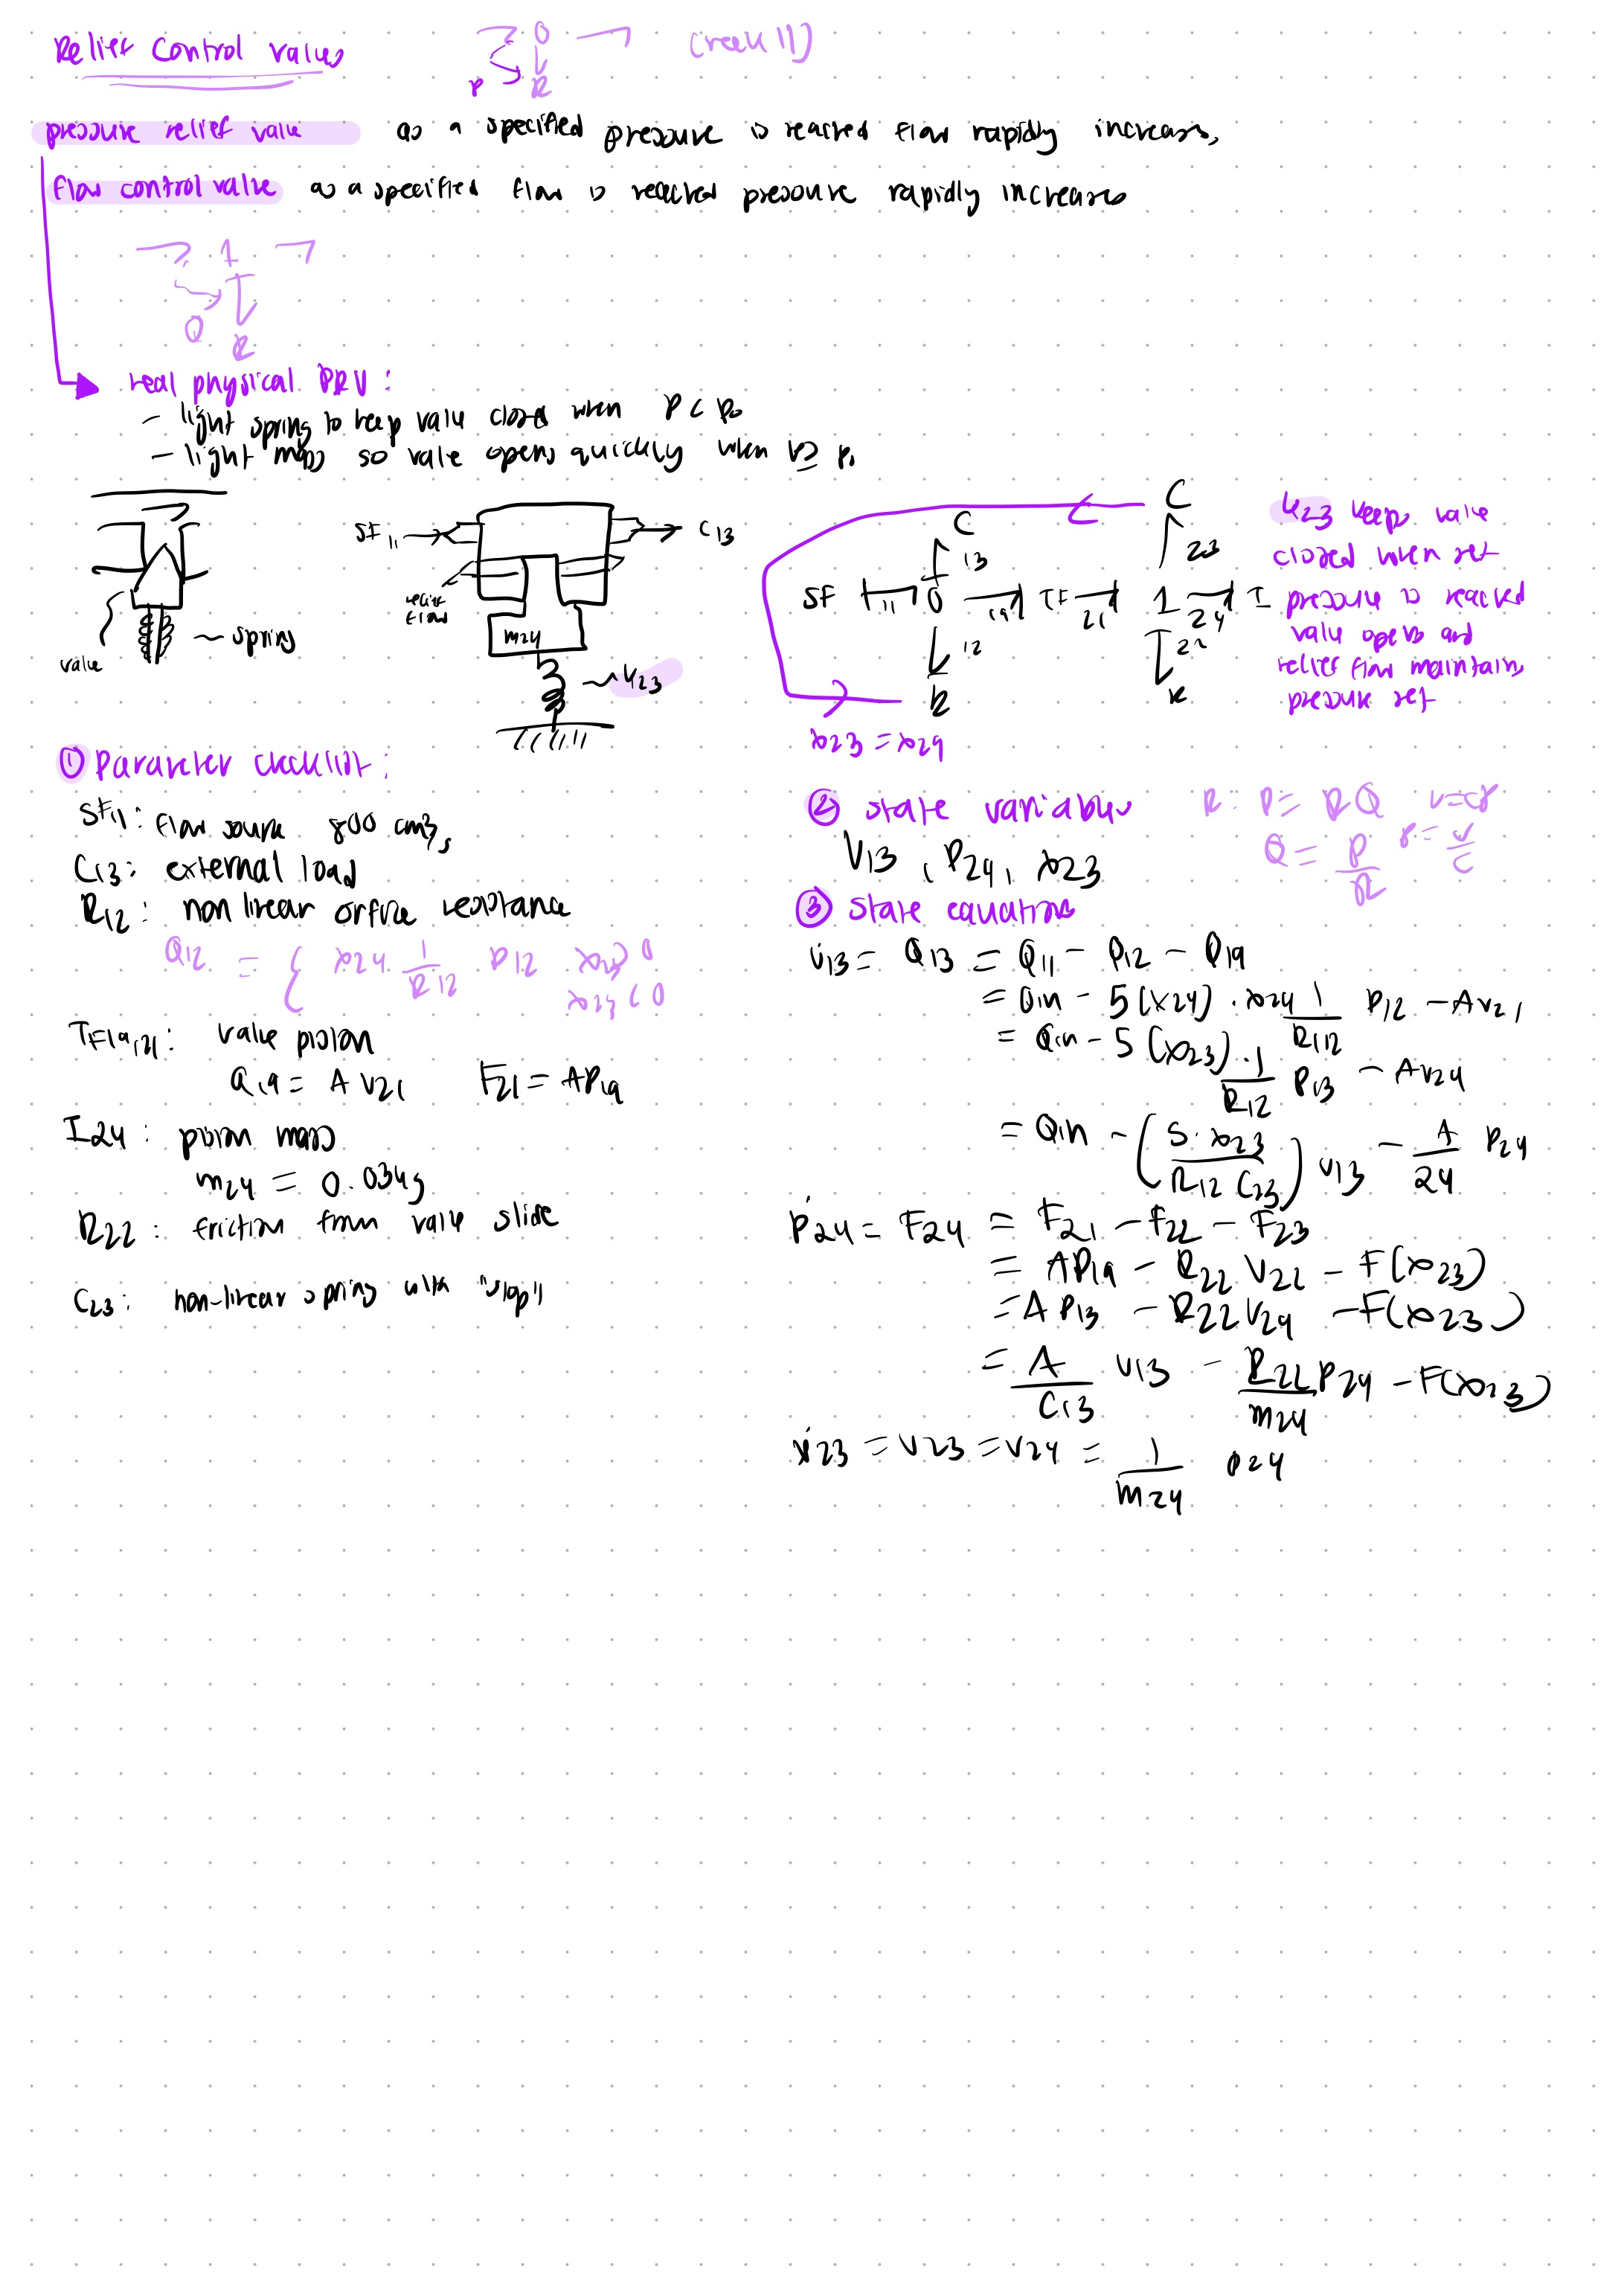 Relief Control valves
0
P R
(week 11)
pressure relief valve as a specified pressure is reached flow rapidly increases,
flow control valve as a specified flow is reached pressure rapidly increases
1
Q R
real physical PRV:
- light spring to keep valve closed when P < P0
- light mass so valve opens quickly when P ≥ P0
valve
spring
SF11
C13
relief flow
m24
K23
C C
13 23
SF 11 0 19 TF 21 1 24 I
12 22
R R
x23 = x24
K23 keeps valve
closed when set
pressure is reached
valve opens and
relief flow maintains
pressure set
① Parameter checklist:
SF11: flow source 800 cm³/s
C13: external load
R12: non linear orfice resistance
Q12 = { x24 1/R12 P12 x23 > 0
x23 < 0
TF19,21: valve piston
Q19 = A V21 F21 = A P19
I24: piston mass
m24 = 0.03kg
R22: friction from valve slide
C23: non-linear spring with "stop"
② state variables
V13, P24, x23
R: P = RQ
Q = P/R
③ State equations
V̇13 = Q13 = Q11 - Q12 - Q19
= Qin - S(x24) · x24 1/R12 P12 - A V21
= Qin - S(x23) · 1/R12 P13 - A V24
= Qin - (S·x23 / R12 C23) V13 - A/24 P24
Ṗ24 = F24 = F21 - F22 - F23
= A P19 - R22 V22 - F(x23)
= A P13 - R22 V24 - F(x23)
= A/C13 V13 - R22/m24 P24 - F(x23)
ẋ23 = V23 = V24 = 1/m24 P24